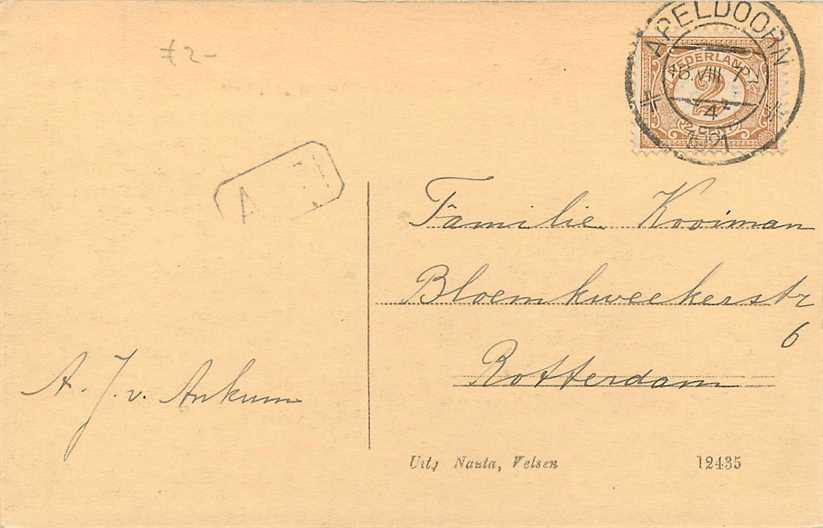 APELDOORN
NEDERLAND
VIII
4
2
CENT
Familie Kooiman
Bloemkweekerstr
6
Rotterdam
A. J. v. Ankum
Uitg Nauta, Velsen 12435